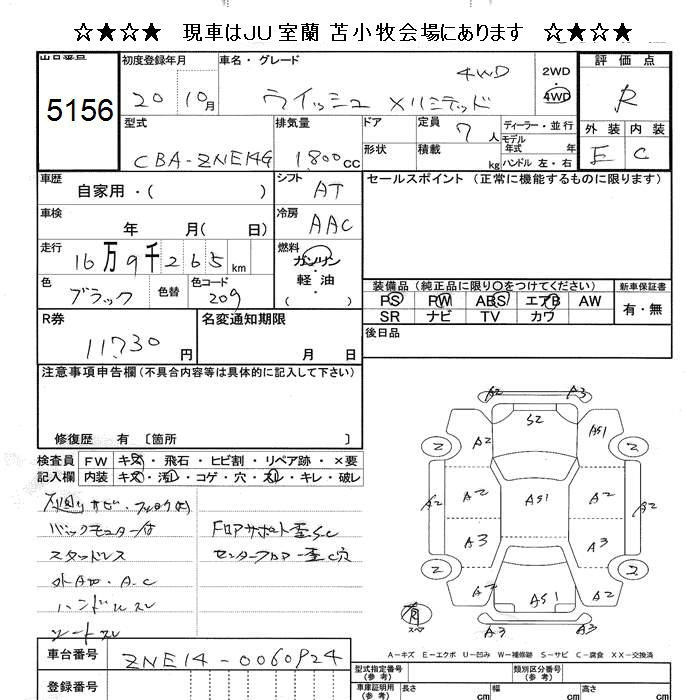 ☆★☆★ 現車はJU室蘭 苫小牧会場にあります ☆★☆★
出品番号 初度登録年月 車名・グレード 評価点
5156 20 10月 ウイッシュ Xリミテッド 4WD 2WD 4WD R
型式 排気量 ドア 定員 ディーラー・並行 外装 内装
CBA-ZNE14G 1,800cc 7人 モデル年式 年 E C
形状 積載 kg ハンドル 左・右
車歴 シフト セールスポイント (正常に機能するものに限ります)
自家用・( ) AT
車検 冷房
年 月( 日) AAC
走行 燃料
16万9千265km ガソリン
軽・油
( )
色 色替 色コード 装備品 (純正品に限り○をつけてください) 新車保証書
ブラック 209 PS PW ABS エアB AW 有・無
SR ナビ TV カワ
R券 名変通知期限 後日品
11730円 月 日
注意事項申告欄(不具合内容等は具体的に記入して下さい)
修復歴 有 〔箇所 〕
検査員 FW キズ・飛石・ヒビ割・リペア跡・×要
記入欄 内装 キズ・汚れ・コゲ・穴・スレ・キレ・破レ
バックモニター付 フロアサポート歪S.C
スタッドレス センターフロアー歪C穴
外A加・A.C
ハンドルスレ
シートスレ
A2 A3
S2
A2 AS1
2 2
A2 A2 AS1 A2 A2
A3 A3
2 2
A2 AS1 A2
有 スペア
A3 A3
A-キズ E-エクボ U-凹み W-補修跡 S-サビ C-腐食 XX-交換済
車台番号 ZNE14-0060924
型式指定番号(参考) 類別区分番号(参考)
登録番号
車庫証明用(参考) 長さ cm 幅 cm 高さ cm